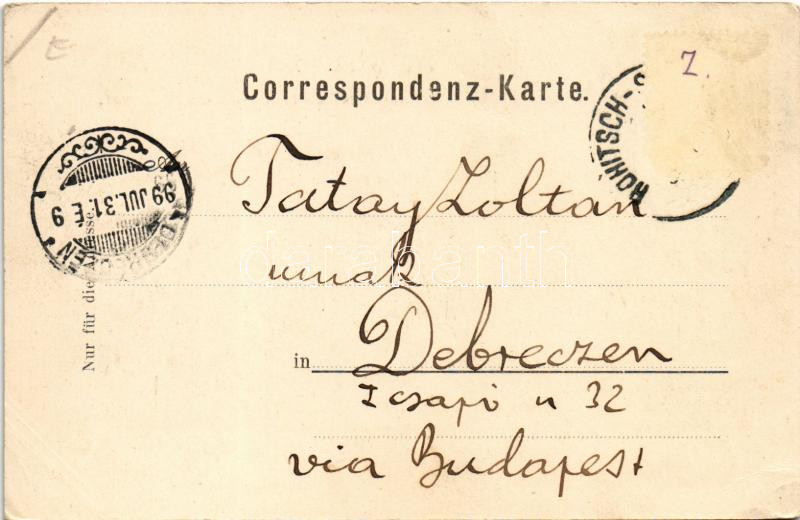 Z.
Correspondenz-Karte.
ROHITSCH-S
99 JUL. 31. E 9
Nur für die Adresse.
Tatay Zoltan
urnak
in Debreczen
Icsapó u 32
via Budapest
darabanth